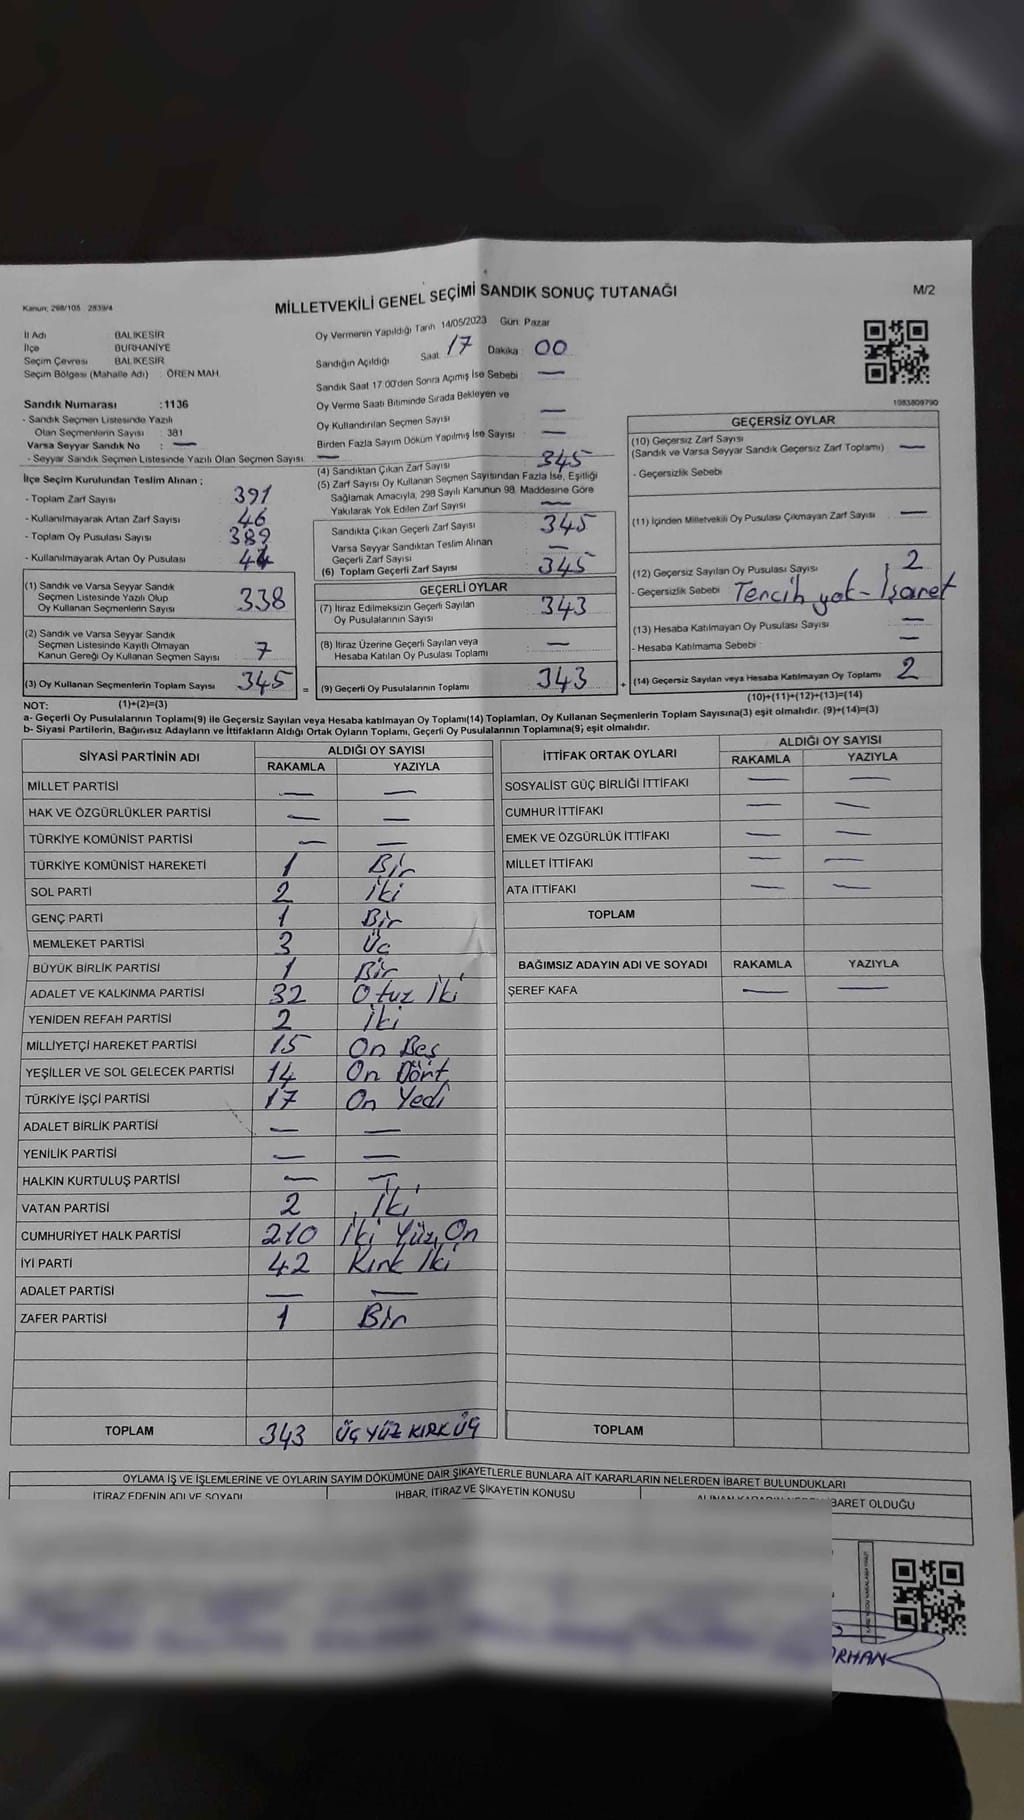 Kanun: 298/105 2839/4
MİLLETVEKİLİ GENEL SEÇİMİ SANDIK SONUÇ TUTANAĞI
M/2
İl Adı BALIKESİR
İlçe BURHANİYE
Seçim Çevresi BALIKESİR
Seçim Bölgesi (Mahalle Adı) : ÖREN MAH.
Sandık Numarası :1136
- Sandık Seçmen Listesinde Yazılı
Olan Seçmenlerin Sayısı : 381
Varsa Seyyar Sandık No : —
- Seyyar Sandık Seçmen Listesinde Yazılı Olan Seçmen Sayısı : —
İlçe Seçim Kurulundan Teslim Alınan ;
- Toplam Zarf Sayısı 391
- Kullanılmayarak Artan Zarf Sayısı 46
- Toplam Oy Pusulası Sayısı 389
- Kullanılmayarak Artan Oy Pusulası 44
(1) Sandık ve Varsa Seyyar Sandık
Seçmen Listesinde Yazılı Olup
Oy Kullanan Seçmenlerin Sayısı 338
(2) Sandık ve Varsa Seyyar Sandık
Seçmen Listesinde Kayıtlı Olmayan
Kanun Gereği Oy Kullanan Seçmen Sayısı 7
(3) Oy Kullanan Seçmenlerin Toplam Sayısı 345 =
Oy Vermenin Yapıldığı Tarih 14/05/2023 Gün: Pazar
Sandığın Açıldığı Saat 17 Dakika : 00
Sandık Saat 17 00'den Sonra Açımış İse Sebebi : —
Oy Verme Saati Bitiminde Sırada Bekleyen ve
Oy Kullandırılan Seçmen Sayısı —
Birden Fazla Sayım Döküm Yapılmış İse Sayısı —
(4) Sandıktan Çıkan Zarf Sayısı 345
(5) Zarf Sayısı Oy Kullanan Seçmen Sayısından Fazla İse, Eşitliği
Sağlamak Amacıyla, 298 Sayılı Kanunun 98. Maddesine Göre
Yakılarak Yok Edilen Zarf Sayısı —
Sandıkta Çıkan Geçerli Zarf Sayısı 345
Varsa Seyyar Sandıktan Teslim Alınan
Geçerli Zarf Sayısı —
(6) Toplam Geçerli Zarf Sayısı 345
GEÇERLİ OYLAR
(7) İtiraz Edilmeksizin Geçerli Sayılan
Oy Pusulalarının Sayısı 343
(8) İtiraz Üzerine Geçerli Sayılan veya
Hesaba Katılan Oy Pusulası Toplamı —
(9) Geçerli Oy Pusulalarının Toplamı 343 +
1083809790
GEÇERSİZ OYLAR
(10) Geçersiz Zarf Sayısı
(Sandık ve Varsa Seyyar Sandık Geçersiz Zarf Toplamı) —
- Geçersizlik Sebebi
(11) İçinden Milletvekili Oy Pusulası Çıkmayan Zarf Sayısı —
(12) Geçersiz Sayılan Oy Pusulası Sayısı 2
- Geçersizlik Sebebi Tercih yok - İşaret
(13) Hesaba Katılmayan Oy Pusulası Sayısı —
- Hesaba Katılmama Sebebi : —
(14) Geçersiz Sayılan veya Hesaba Katılmayan Oy Toplamı 2
NOT: (1)+(2)=(3)
(10)+(11)+(12)+(13)=(14)
a- Geçerli Oy Pusulalarının Toplamı(9) ile Geçersiz Sayılan veya Hesaba katılmayan Oy Toplamı(14) Toplamları, Oy Kullanan Seçmenlerin Toplam Sayısına(3) eşit olmalıdır. (9)+(14)=(3)
b- Siyasi Partilerin, Bağımsız Adayların ve İttifakların Aldığı Ortak Oyların Toplamı, Geçerli Oy Pusulalarının Toplamına(9) eşit olmalıdır.
SİYASİ PARTİNİN ADI ALDIĞI OY SAYISI
RAKAMLA YAZIYLA
MİLLET PARTİSİ — —
HAK VE ÖZGÜRLÜKLER PARTİSİ — —
TÜRKİYE KOMÜNİST PARTİSİ — —
TÜRKİYE KOMÜNİST HAREKETİ 1 Bir
SOL PARTİ 2 İki
GENÇ PARTİ 1 Bir
MEMLEKET PARTİSİ 3 Üç
BÜYÜK BİRLİK PARTİSİ 1 Bir
ADALET VE KALKINMA PARTİSİ 32 Otuz İki
YENİDEN REFAH PARTİSİ 2 İki
MİLLİYETÇİ HAREKET PARTİSİ 15 On Beş
YEŞİLLER VE SOL GELECEK PARTİSİ 14 On Dört
TÜRKİYE İŞÇİ PARTİSİ 17 On Yedi
ADALET BİRLİK PARTİSİ — —
YENİLİK PARTİSİ — —
HALKIN KURTULUŞ PARTİSİ — —
VATAN PARTİSİ 2 İki
CUMHURİYET HALK PARTİSİ 210 İki Yüz On
İYİ PARTİ 42 Kırk İki
ADALET PARTİSİ — —
ZAFER PARTİSİ 1 Bir
TOPLAM 343 ÜÇ YÜZ KIRK ÜÇ
İTTİFAK ORTAK OYLARI ALDIĞI OY SAYISI
RAKAMLA YAZIYLA
SOSYALİST GÜÇ BİRLİĞİ İTTİFAKI — —
CUMHUR İTTİFAKI — —
EMEK VE ÖZGÜRLÜK İTTİFAKI — —
MİLLET İTTİFAKI — —
ATA İTTİFAKI — —
TOPLAM
BAĞIMSIZ ADAYIN ADI VE SOYADI RAKAMLA YAZIYLA
ŞEREF KAFA — —
TOPLAM
OYLAMA İŞ VE İŞLEMLERİNE VE OYLARIN SAYIM DÖKÜMÜNE DAİR ŞİKAYETLERLE BUNLARA AİT KARARLARIN NELERDEN İBARET BULUNDUKLARI
İTİRAZ EDENİN ADI VE SOYADI İHBAR, İTİRAZ VE ŞİKAYETİN KONUSU İBARET OLDUĞU
ORHAN